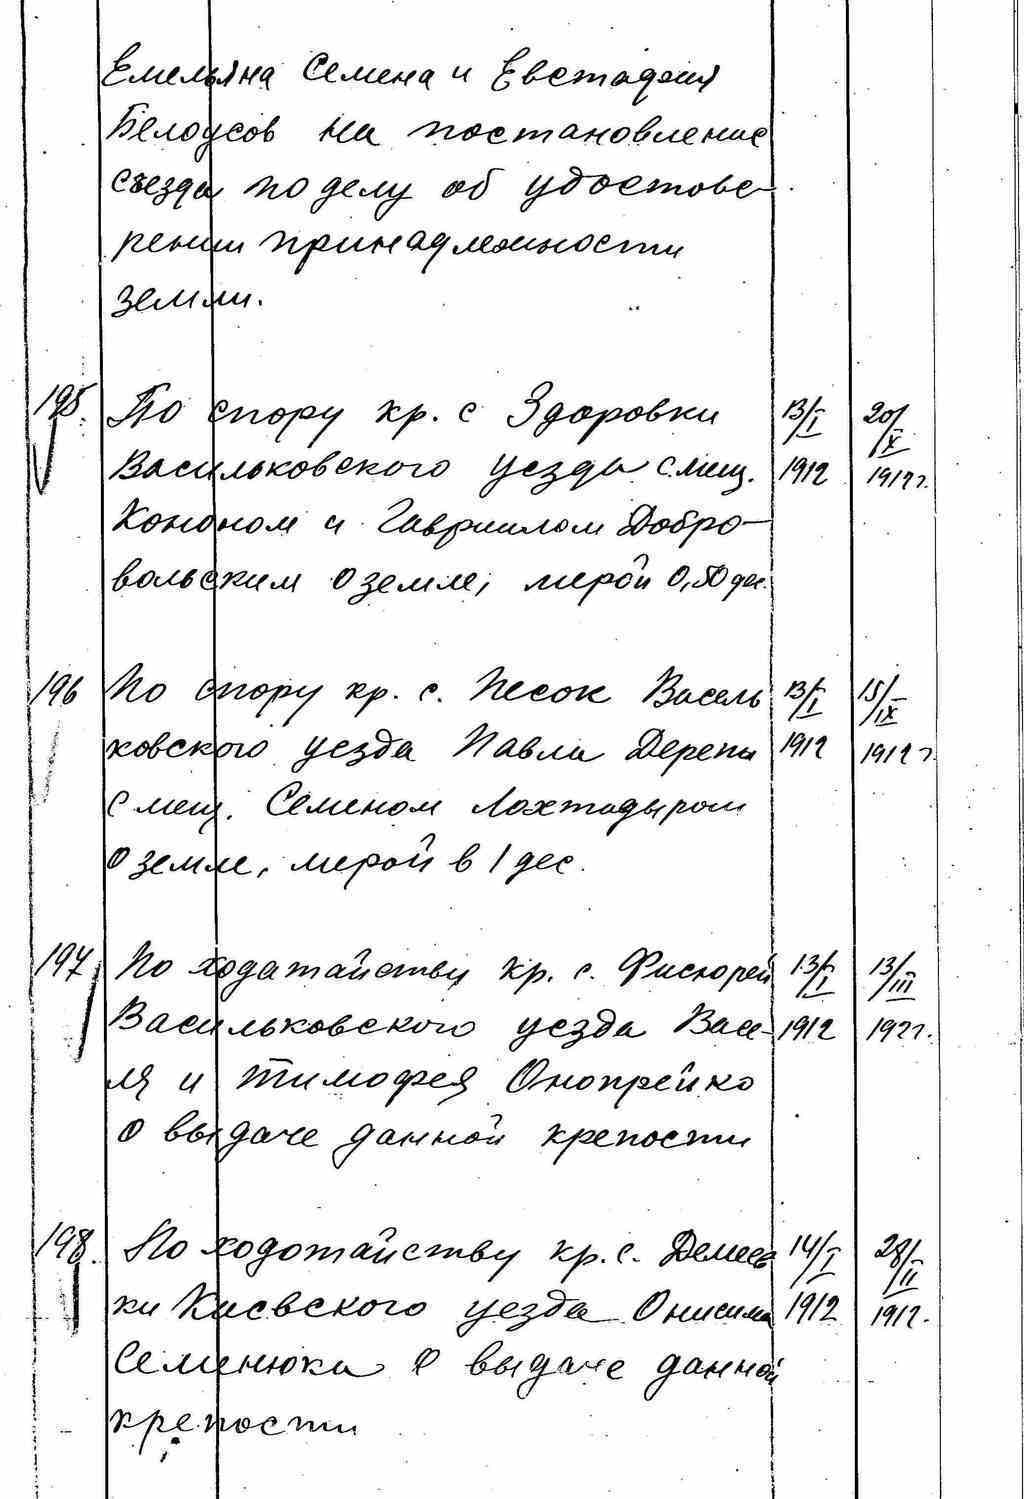 Емельяна Семена и Евстафия
Белоусов на постановление
съезда по делу об удостове-
рении принадлежности
земли.
195. По спору кр. с Здоровки 13/I 20/X
Васильковского уезда с мещ. 1912 1912 г.
Кононом и Гавриилом Добро-
вольским о земле, мерой 0,50 дес.
196 По спору кр. с. Песок Василь 13/I 15/IX
ковского уезда Павла Дерепы 1912 1912 г
с мещ. Семеном Лохтадыром
о земле, мерой в 1 дес.
197 По ходатайству кр. с. Фисюрей 13/I 13/III
Васильковского уезда Васи- 1912 192 г.
ля и Тимофея Онопрейко
о выдаче данной крепости
198. По ходотайству кр. с. Демиев 14/I 28/II
ки Киевского уезда Онисима 1912 1912.
Семенюка о выдаче данной
крепости